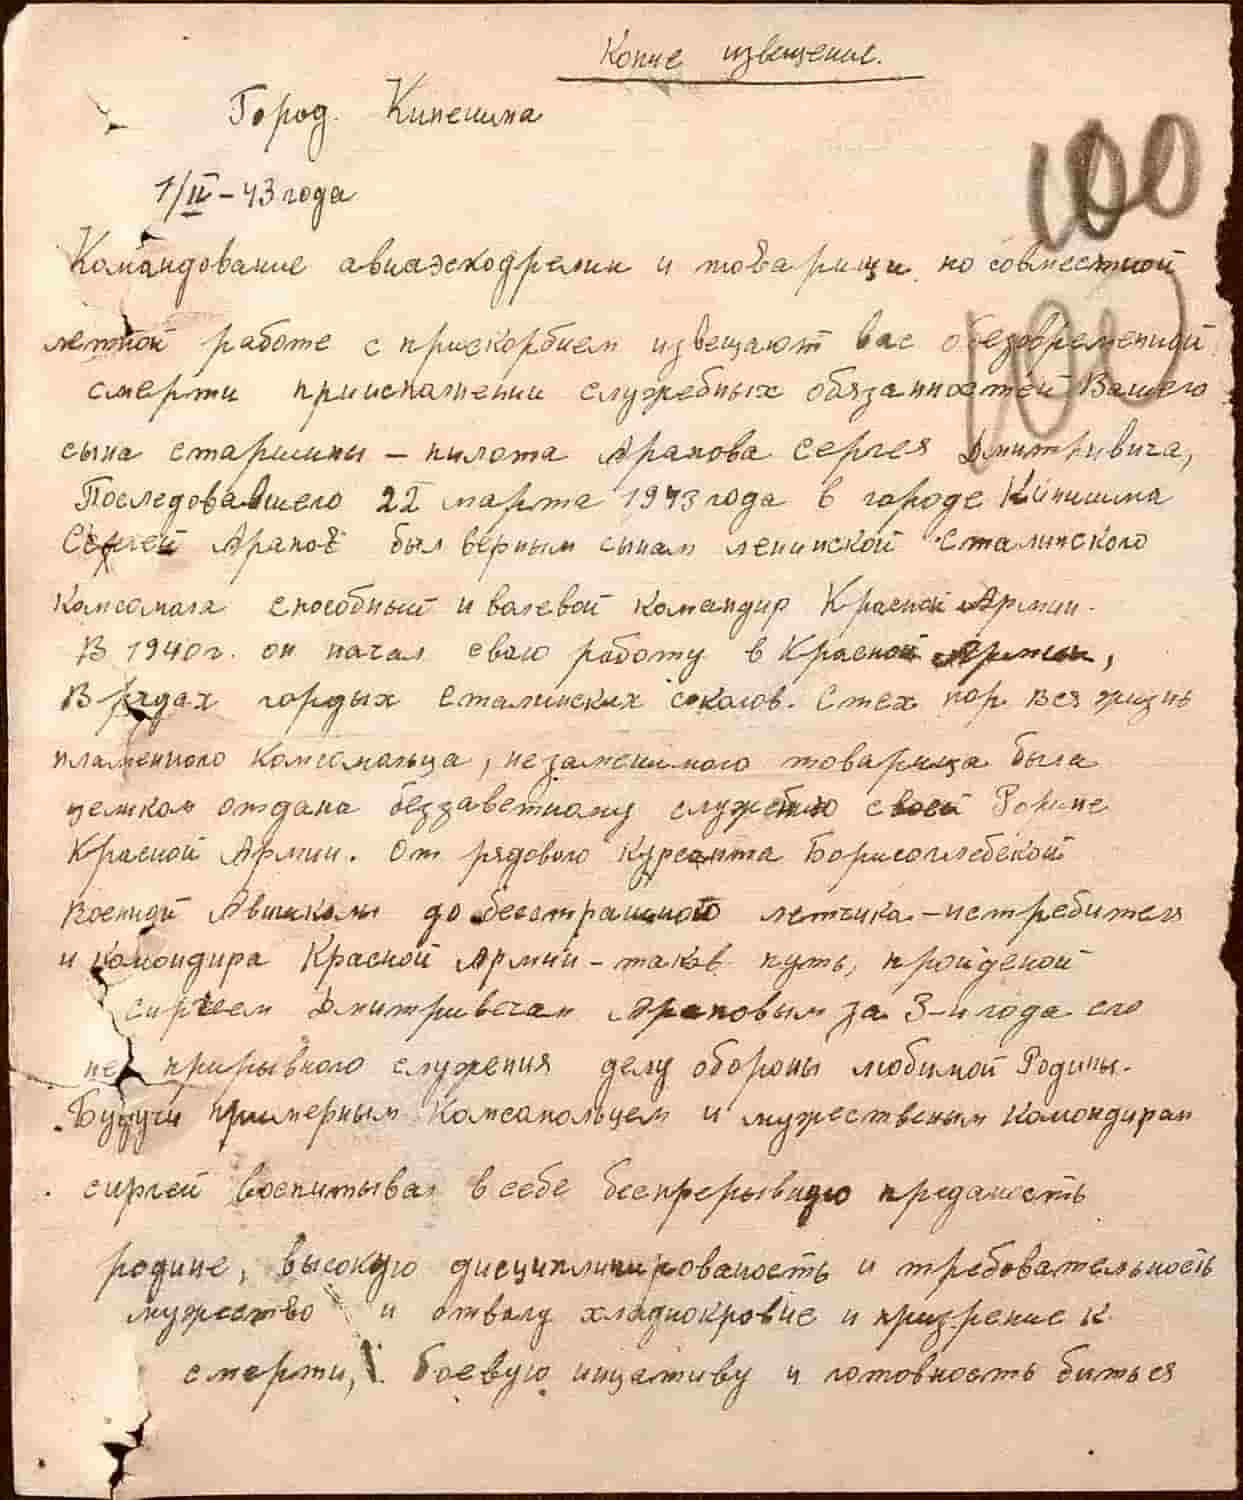 Копие извещение.
Город. Кинешма
1/IV-43 года
100
Командование авиаэскодрелии и товарищи по совместной
100
летной работе с прискорбием извещают вас о безовременной
смерти приисполнении служебных обязанностей Вашего
сына старшины – пилота Арапова Сергея Дмитривича,
Последовавшего 22 марта 1943 года в городе Кинишма
Сергей Арапов был верным сынам ленинской Сталинского
Комсомола способный и волевой командир Красной Армии.
В 1940 г. он начал свою работу в Красной Армии,
В рядах гордых Сталинских соколов. С тех пор вся жизнь
пламенного комсомольца, незаменимого товарища была
целиком отдана беззаветному службою своей Родине
Красной Армии. От рядового курсанта Борисоглебской
Военной Авишколы до бесстрашного летчика-истребителя
и командира Красной Армии – таков путь, пройденой
Сиргеем Дмитривичам Араповым за 3-и года его
не прирывного служения делу обороны любимой Родины.
Будучи примерным Комсамольцем и мужественым Командирам
сиргей воспитывал в себе беспрерывную преданость
родине, высокую дисциплинированость и требовательность
мужество и отвагу хладнокровие и призрение к
смерти, боевую инцативу и готовность биться